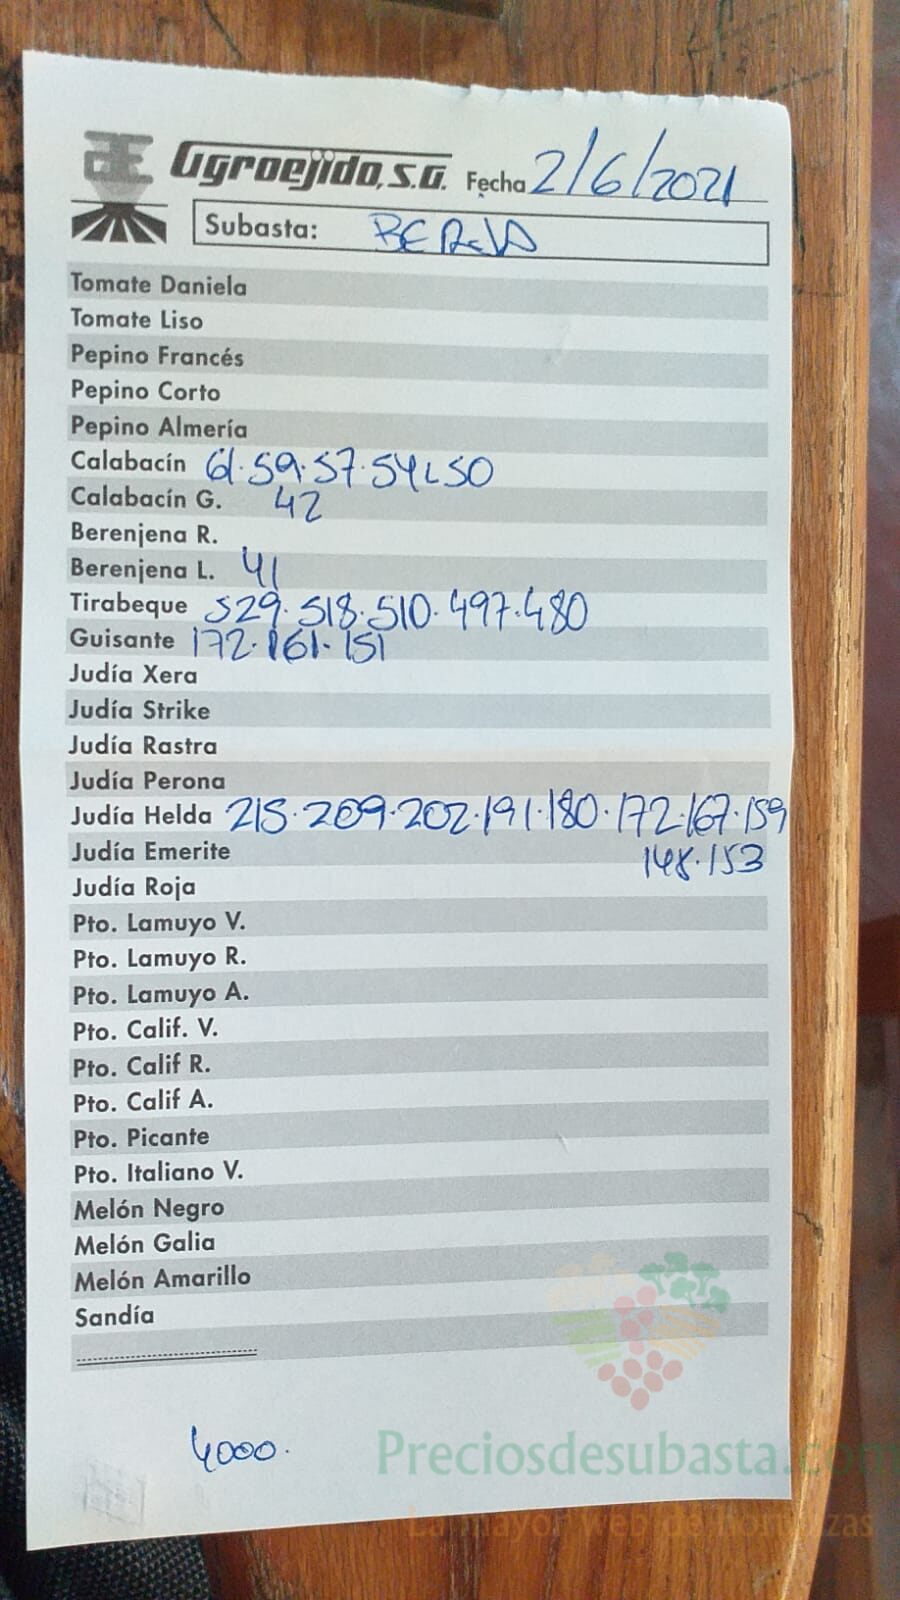 Agroejido, S.A. Fecha 2/6/2021
Subasta: BERJA
Tomate Daniela
Tomate Liso
Pepino Francés
Pepino Corto
Pepino Almería
Calabacín 61·59·57·54·50
Calabacín G. 42
Berenjena R.
Berenjena L. 41
Tirabeque 529·518·510·497·480
Guisante 172·161·151
Judía Xera
Judía Strike
Judía Rastra
Judía Perona
Judía Helda 215·209·202·191·180·172·167·159
Judía Emerite 148·153
Judía Roja
Pto. Lamuyo V.
Pto. Lamuyo R.
Pto. Lamuyo A.
Pto. Calif. V.
Pto. Calif R.
Pto. Calif A.
Pto. Picante
Pto. Italiano V.
Melón Negro
Melón Galia
Melón Amarillo
Sandía
4000.
Preciosdesubasta.com
La mayor web de hortalizas